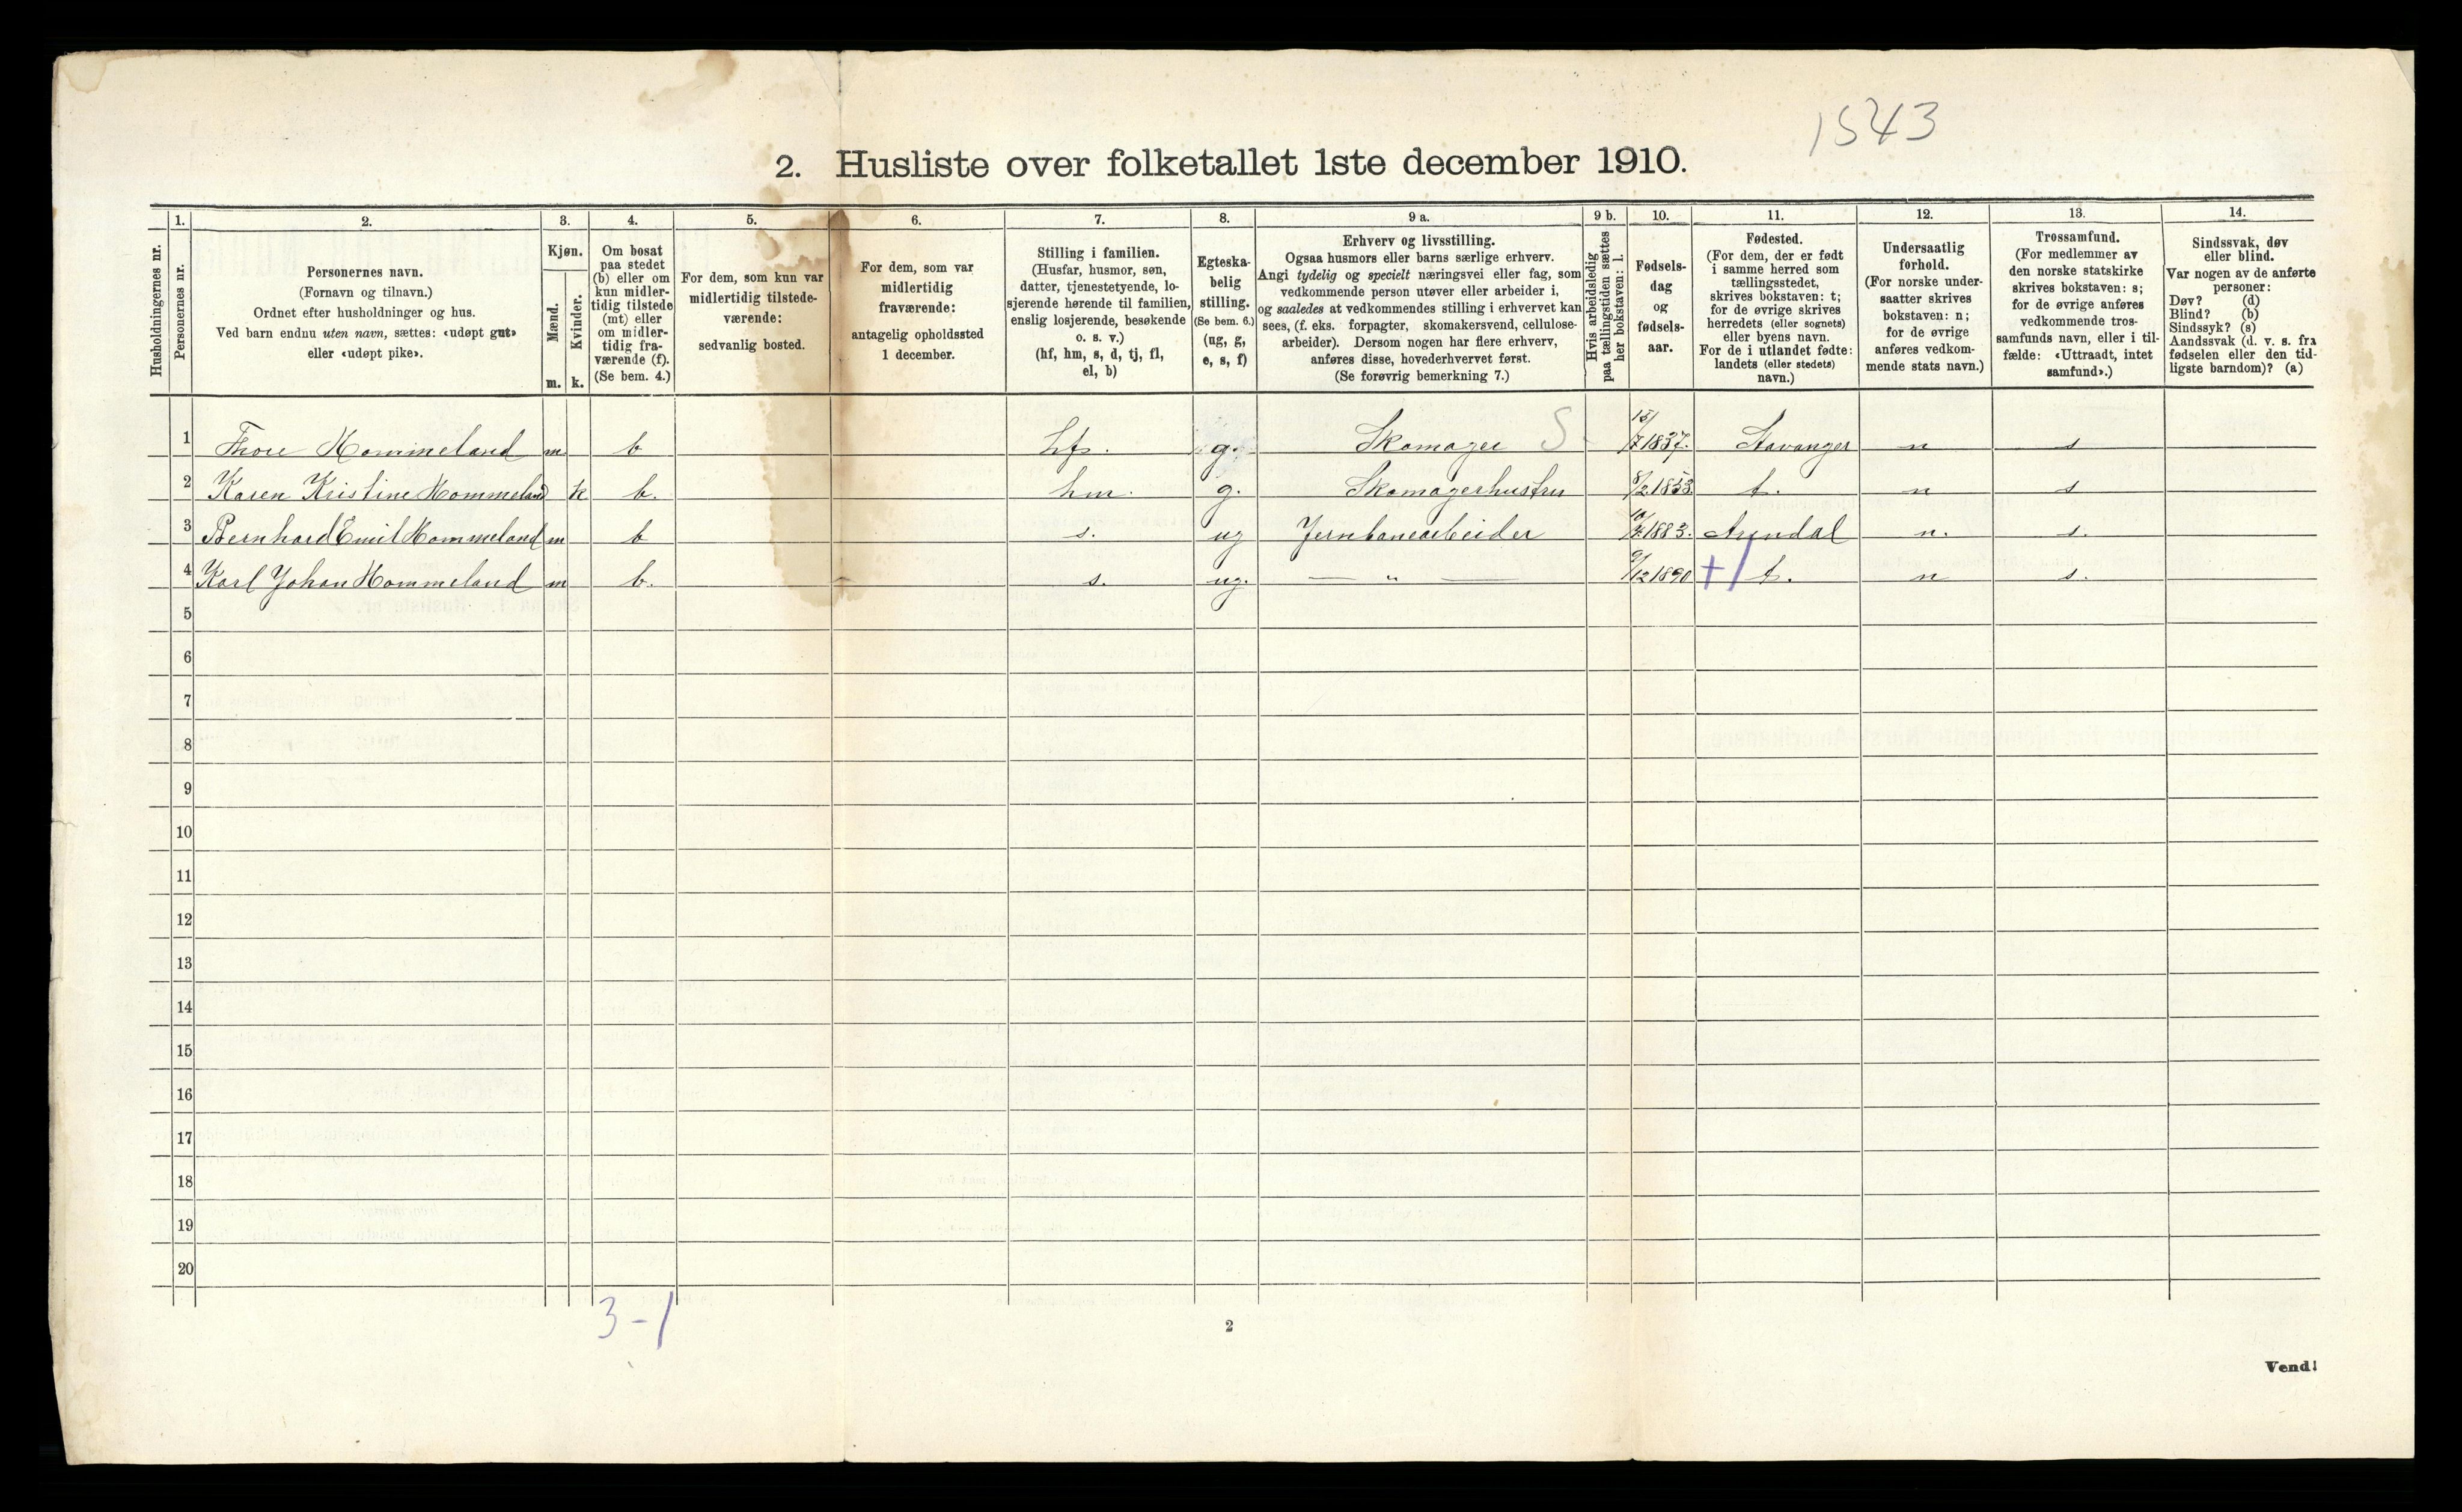 1543
2. Husliste over folketallet 1ste december 1910.
Husholdningernes nr.
1.
Personernes nr.
2.
Personernes navn.
(Fornavn og tilnavn.)
Ordnet efter husholdninger og hus.
Ved barn endnu uten navn, sættes: «udøpt gut»
eller «udøpt pike».
3.
Kjøn.
Mænd.
Kvinder.
m. k.
4.
Om bosat
paa stedet
(b) eller om
kun midler-
tidig tilstede
(mt) eller
om midler-
tidig fra-
værende (f).
(Se bem. 4.)
5.
For dem, som kun var
midlertidig tilstede-
værende:
sedvanlig bosted.
6.
For dem, som var
midlertidig
fraværende:
antagelig opholdssted
1 december.
7.
Stilling i familien.
(Husfar, husmor, søn,
datter, tjenestetyende, lo-
sjerende hørende til familien,
enslig losjerende, besøkende
o. s. v.)
(hf, hm, s, d, tj, fl,
el, b)
8.
Egteska-
belig
stilling.
(Se bem. 6.)
(ug, g,
e, s, f)
9 a.
Erhverv og livsstilling.
Ogsaa husmors eller barns særlige erhverv.
Angi tydelig og specielt næringsvei eller fag, som
vedkommende person utøver eller arbeider i,
og saaledes at vedkommendes stilling i erhvervet kan
sees, (f. eks. forpagter, skomakersvend, cellulose-
arbeider). Dersom nogen har flere erhverv,
anføres disse, hovederhvervet først.
(Se forøvrig bemerkning 7.)
9 b.
Hvis arbeidsledig
paa tællingstiden sættes
her bokstaven: l.
10.
Fødsels-
dag
og
fødsels-
aar.
11.
Fødested.
(For dem, der er født
i samme herred som
tællingsstedet,
skrives bokstaven: t;
for de øvrige skrives
herredets (eller sognets)
eller byens navn.
For de i utlandet fødte:
landets (eller stedets)
navn.)
12.
Undersaatlig
forhold.
(For norske under-
saatter skrives
bokstaven: n;
for de øvrige
anføres vedkom-
mende stats navn.)
13.
Trossamfund.
(For medlemmer av
den norske statskirke
skrives bokstaven: s;
for de øvrige anføres
vedkommende tros-
samfunds navn, eller i til-
fælde: «Uttraadt, intet
samfund».)
14.
Sindssvak, døv
eller blind.
Var nogen av de anførte
personer:
Døv? (d)
Blind? (b)
Sindssyk? (s)
Aandssvak (d. v. s. fra
fødselen eller den tid-
ligste barndom)? (a)
1 Thore Hommeland m b hf. g. Skomager S 15/7 1837. Stavanger n s
2 Karen Kristine Hommeland k b. hm. g. Skomagerhustru 8/2 1853. t. n s
3 Bernhard Emil Hommeland m b s. ug Jernbanearbeider 10/7 1883. Arendal n. s.
4 Karl Johan Hommeland m b. s. ug. — " — 9/12 1890 t. n s.
5
6
7
8
9
10
11
12
13
14
15
16
17
18
19
20
3-1
2
Vend!